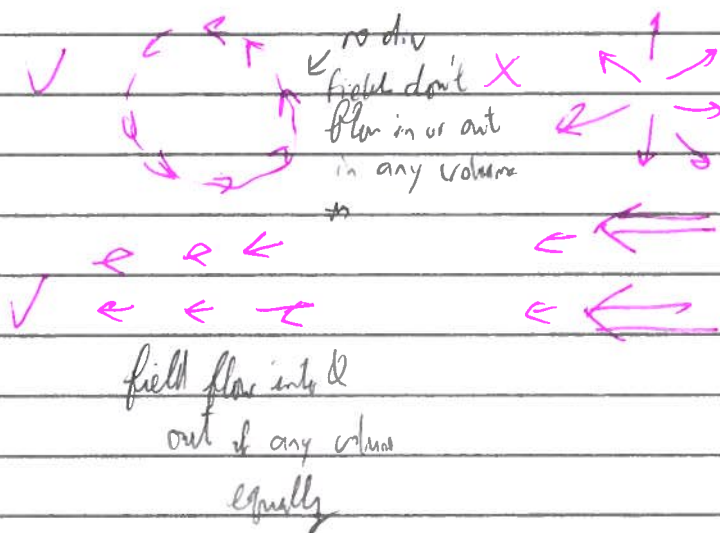 no div
field don't
flow in or out
in any volume
field flow into &
out of any volume
equally